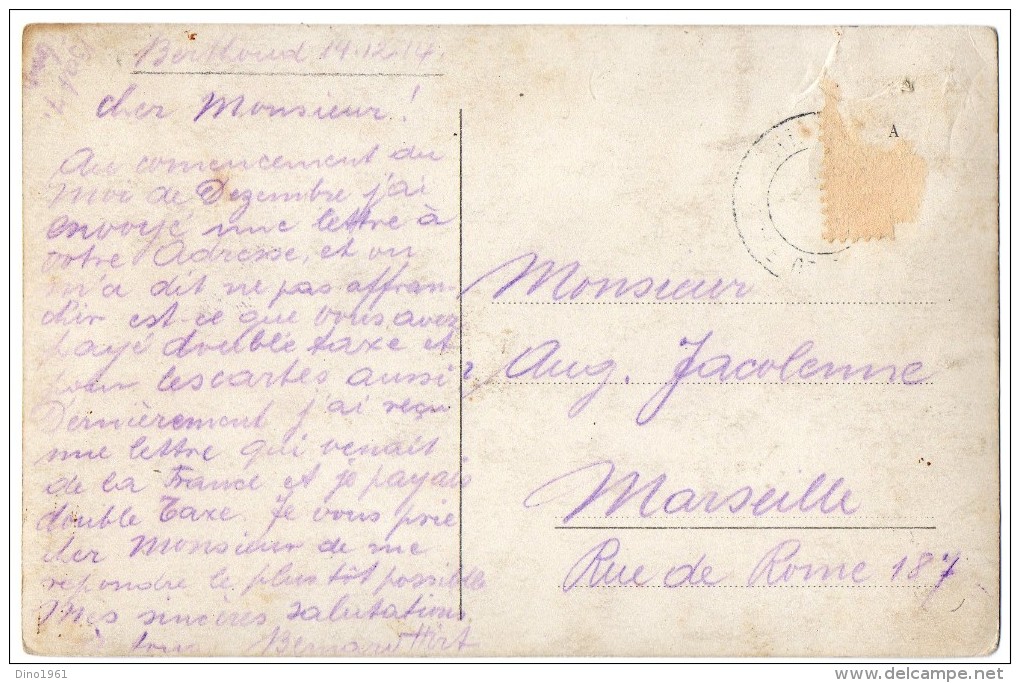 Berthoud 14.12.14.
cher Monsieur!
Au comencement du
Moi de Dezembre j'ai
envoyé une lettre à
votre Adresse, et on
m'a dit ne pas affran-
chir est-ce que vous avez
payé double taxe et
pour les cartes aussi?
Dernièrement j'ai reçu
une lettre qui venait
de la France et je payais
double Taxe. Je vous prie
cher Monsieur de me
repondre le plus tôt possible
Mes sincères salutations
à tous Bernard Hirt
A
Monsieur
Aug. Jacolenne
Marseille
Rue de Rome 187
Dino1961
www.delcampe.net